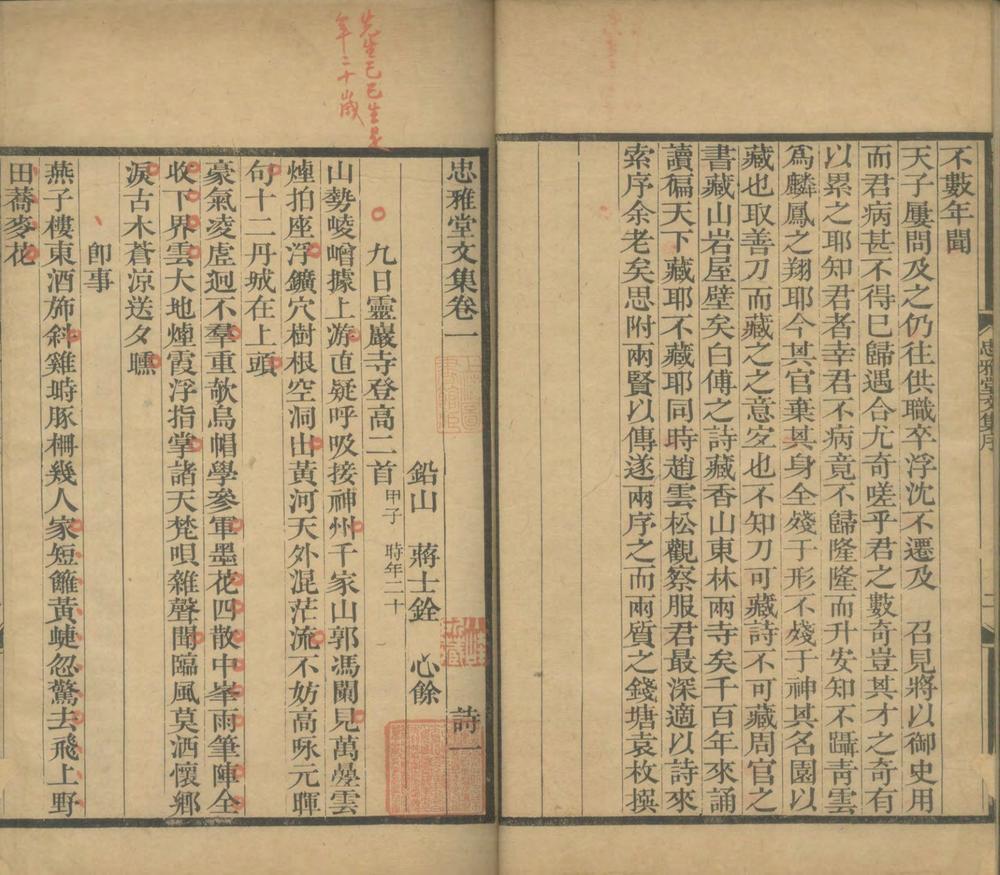 不數年聞
天子屢問及之仍往供職卒浮沈不遷及　召見將以御史用
而君病甚不得已歸遇合尤奇嗟乎君之數奇豈其才之奇有
以累之耶知君者幸君不病竟不歸隆隆而升安知不躡青雲
爲麟鳳之翔耶今其官棄其身全殘于形不殘于神其名園以
藏也取善刀而藏之之意㝎也不知刀可藏詩不可藏周官之
書藏山岩屋壁矣白傅之詩藏香山東林兩寺矣千百年來誦
讀徧天下藏耶不藏耶同時趙雲松觀察服君最深適以詩來
索序余老矣思附兩賢以傳遂兩序之而兩質之錢塘袁枚撰
忠雅堂文集序
二
先生乙巳生是
年二十歲
忠雅堂文集卷一　詩一
鉛山　蔣士銓　心餘
九日靈巖寺登高二首　甲子　時年二十
山勢崚嶒據上游直疑呼吸接神州千家山郭馮闌見萬壘雲
煙拍座浮鑛穴樹根空洞出黃河天外混茫流不妨高咏元暉
句十二丹城在上頭
豪氣凌虛迥不羣重欹烏帽學參軍墨花四散中峯雨筆陣全
收下界雲大地煙霞浮指掌諸天梵唄雜聲聞臨風莫洒懷鄉
淚古木蒼涼送夕曛
卽事
燕子樓東酒斾斜雞塒豚柵幾人家短籬黃蜨忽驚去飛上野
田蕎麥花